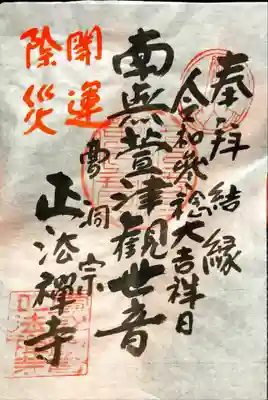 奉拝 結縁
令和参稔大吉祥日
南無萱津観世音
曹洞宗
正法禅寺
開運
除災